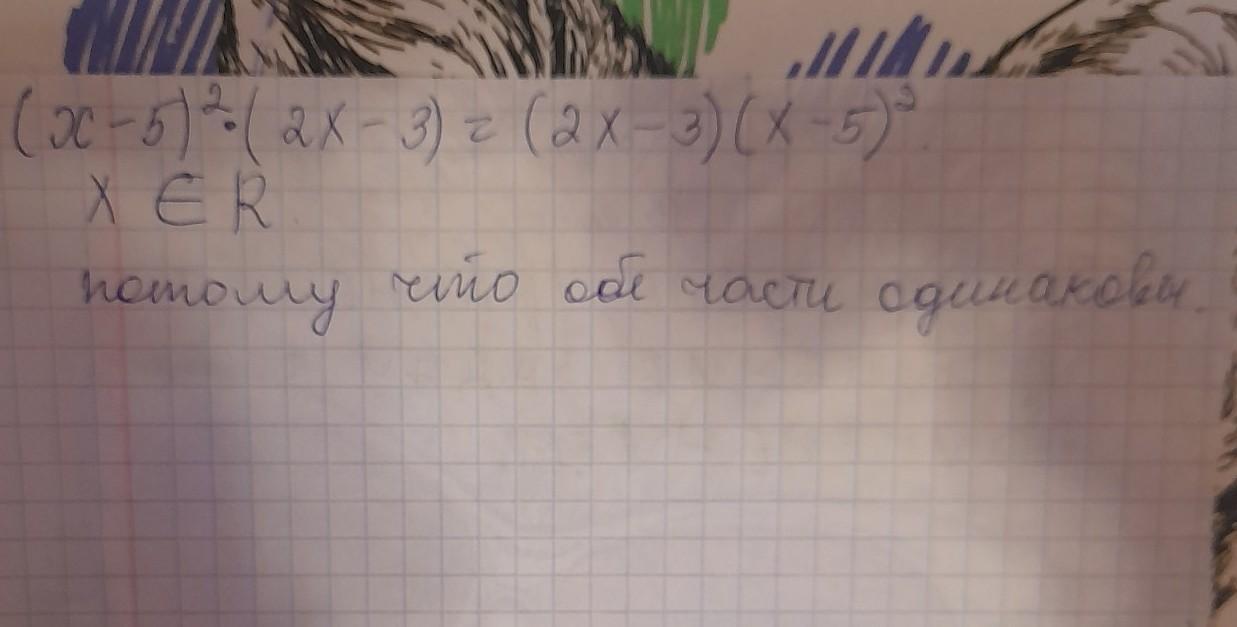 (x-5)²·(2x-3)=(2x-3)(x-5)²
x ∈ R
потому что обе части одинаковы.